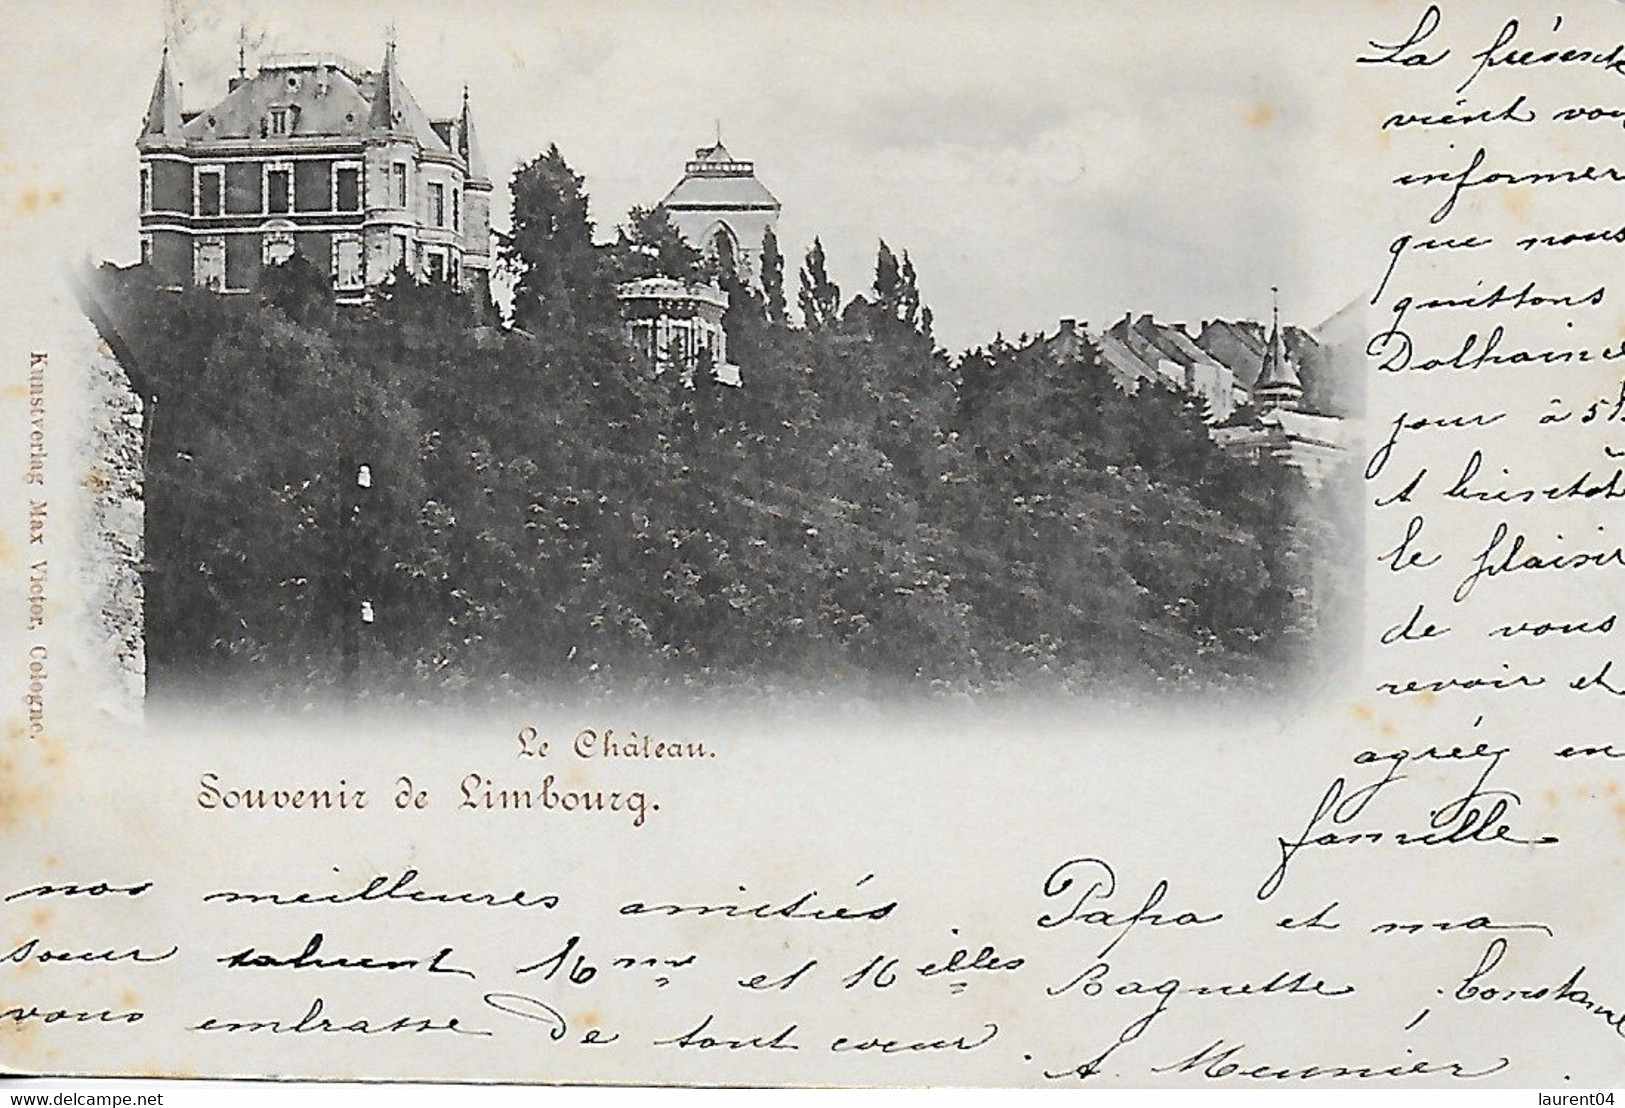 La présente
vient vou
informer
que nous
quittons
Dolhain
jour à 5
A bientôt
le plaisir
de vous
revoir et
agréez en
famille
nos meilleures amitiés. Papa et ma
soeur saluent Mme et Melles Baguette, Constance
vous embrasse de tout coeur.
A. Meunier.
Le Château.
Souvenir de Limbourg.
Kunstverlag Max Victor, Cologne.
delcampe.net
laurent04